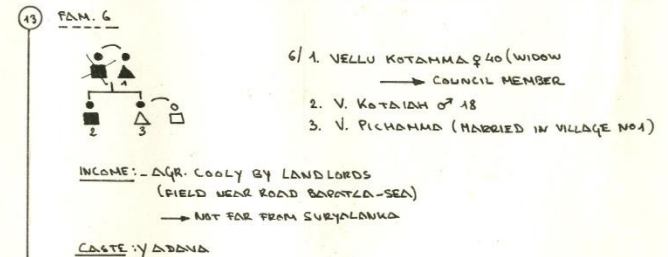 13 FAM. 6
6/ 1. VELLU KOTAMMA ♀ 40 (WIDOW
→ COUNCIL MEMBER
1
2. V. KOTAIAH ♂ 18
2 3
3. V. PICHAMMA (MARRIED IN VILLAGE NO1)
INCOME:- AGR. COOLY BY LANDLORDS
(FIELD NEAR ROAD BAPATLA-SEA)
→ NOT FAR FROM SURYALANKA
CASTE: YADAVA